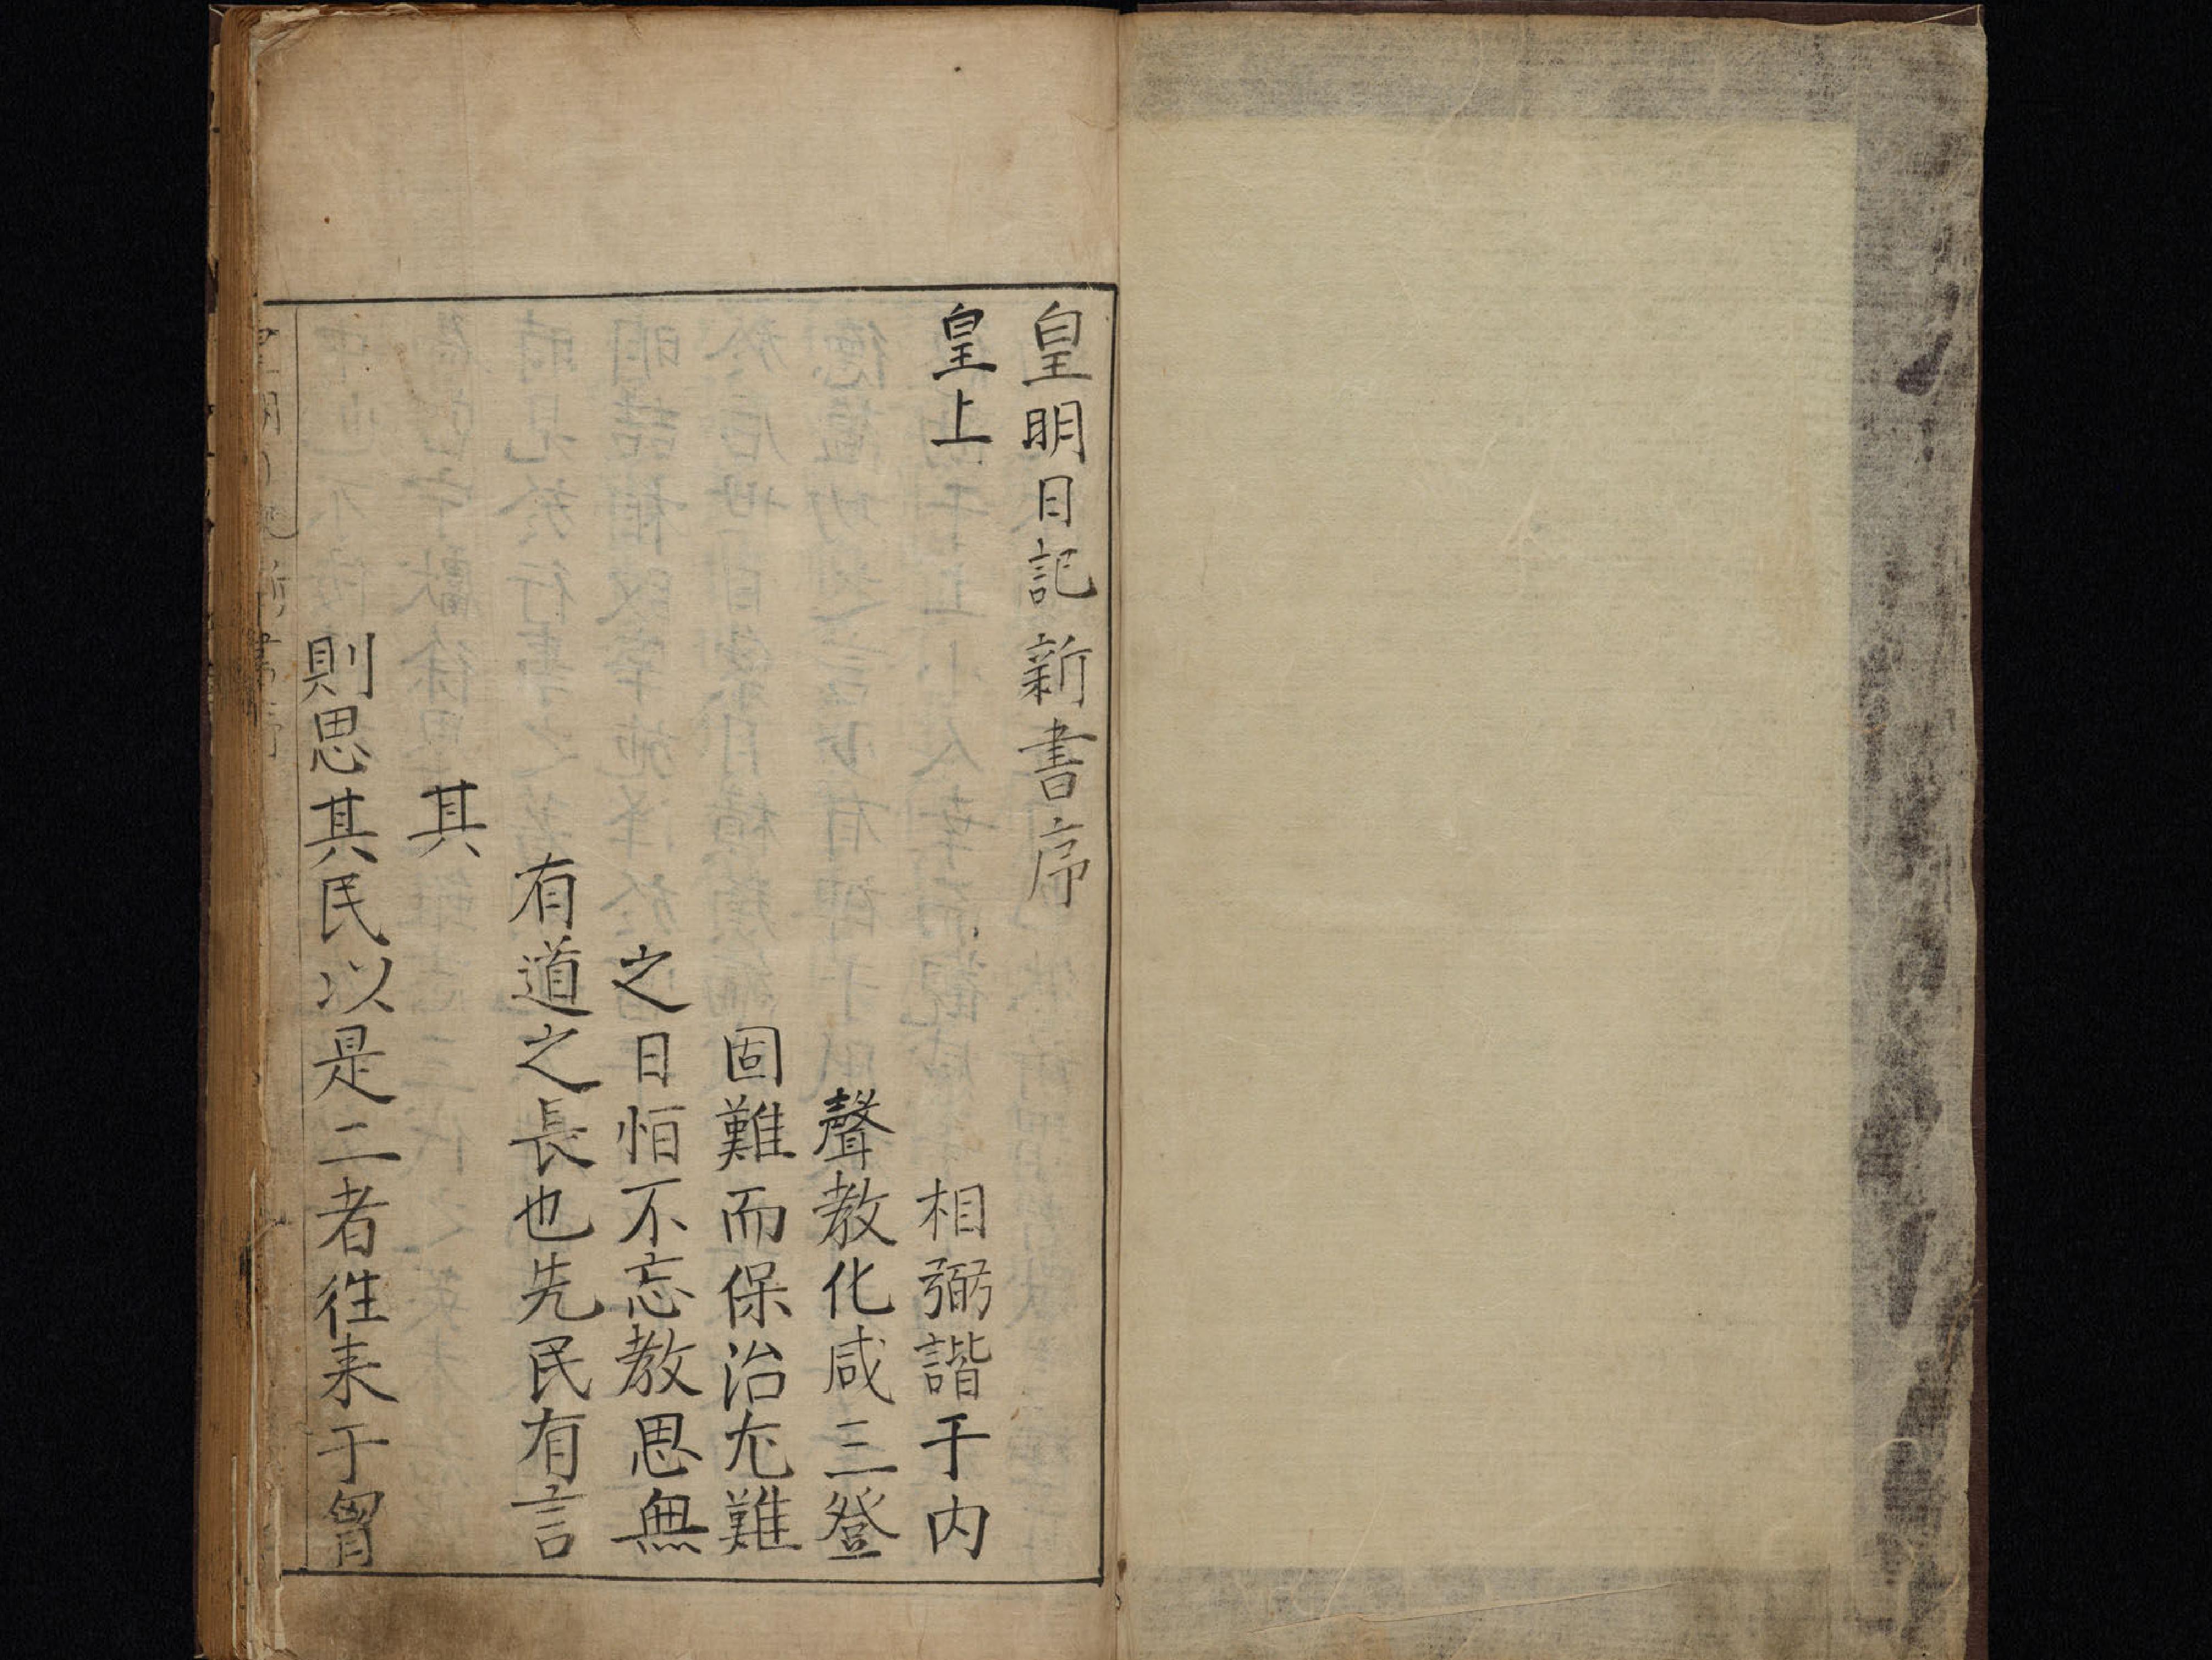 皇明日記新書序
皇上　相弼諧于内
聲教化咸三登
固難而保治尤難
之日恒不忘教思無
有道之長也先民有言
其
則思其民以是二者徃来于胷